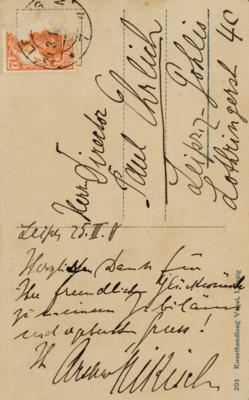 Herrn Director
Paul Ehrlich
Leipzig Gohlis
Lothringerst 4C
Leipz 25. II. 18
Herzlichen Dank für
Ihre freundlichen Glückwünsche
zu meinem Jubiläum
und
Gruss!
Ihr
Arthur Nikisch
203 Kunsthandlung Vogel,